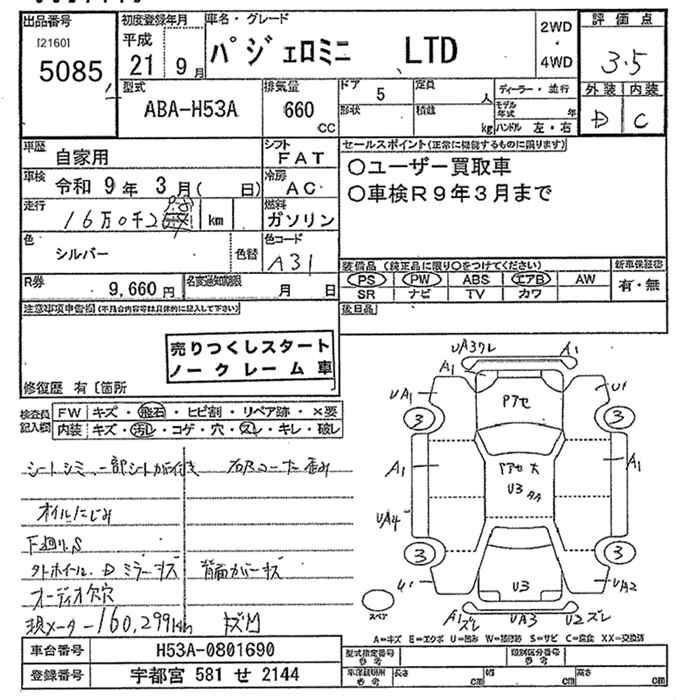 出品番号 初度登録年月 車名・グレード 2WD 評価点
I21601 5085 平成 21 9月 パジェロミニ LTD 4WD 3.5
型式 排気量 ドア 5 定員 人 ディーラー・並行 外装 内装
ABA-H53A 660 CC 形状 積載 kg モデル年式 年 ハンドル 左・右 D C
車歴 自家用 シフト FAT セールスポイント(正常に機能するものに限ります)
車検 令和 9年 3月(日) 冷房 AC 〇ユーザー買取車
走行 16万0千2 km 燃料 ガソリン 〇車検R9年3月まで
色 シルバー 色替 色コード A31
装備品 (純正品に限り〇をつけてください) 新車保証書
R券 9,660円 名変通知期限 月 日 PS PW ABS エアB AW 有・無
SR ナビ TV カワ
注意事項申告欄(不具合内容等は具体的に記入して下さい) 後日品
売りつくしスタート
ノークレーム車
修復歴 有〔箇所
検査員記入欄 FW キズ・飛石・ヒビ割・リペア跡・×要
内装 キズ・汚レ・コゲ・穴・スレ・キレ・破レ
UA3ワレ A1
A1
UA1 U1
Pアセ
3 3
A1 A1
Pアセ大
U3
UA4
3 3
U1 U3 UA2
A1ズレ UA3 U2ズレ
スペア
シートシミ、一部シート
オイルにじみ
F廻りS
外ホイール、Dミラーキズ 背面カバーキズ
オーディオ欠穴
現メーター160,299km
A=キズ E=エクボ U=凹み W=補修跡 S=サビ C=腐食 XX=交換済
車台番号 H53A-0801690 型式指定番号 参考 類別区分番号 参考
登録番号 宇都宮 581 せ 2144 車庫証明用 参考 長さ cm 幅 cm 高さ cm